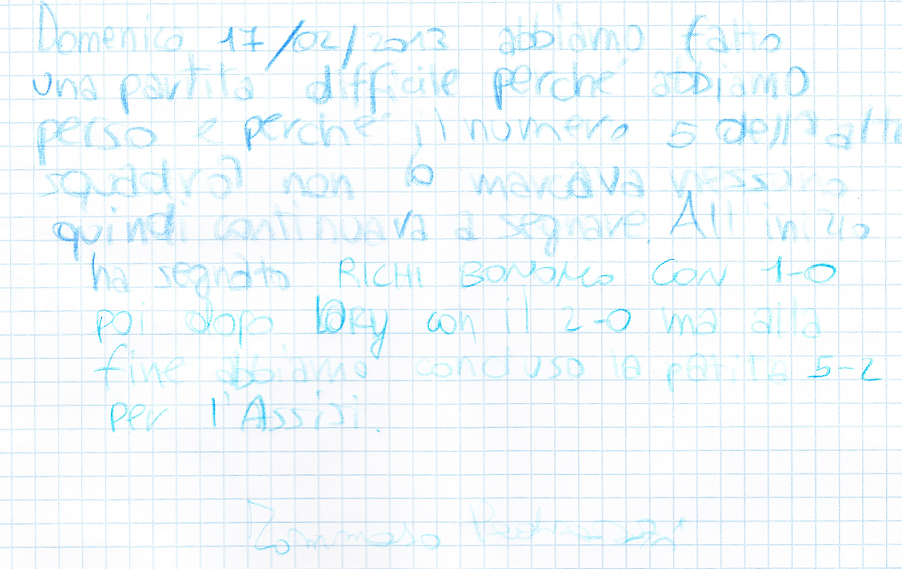 Domenico 17/02/2013 abbiamo fatto
una partita difficile perchè abbiamo
perso e perchè il numero 5 della alt
squadra non lo marcava nessuno
quindi continuava a segnare. All'inizio
ha segnato RICHI BONOMO CON 1-0
poi dopo LORY con il 2-0 ma alla
fine abbiamo concluso la partita 5-2
per l'Assisi.
Tommaso